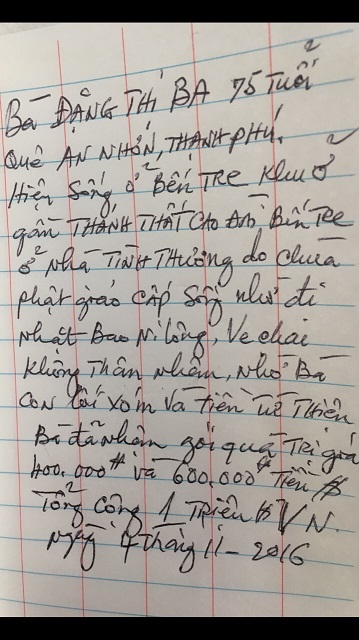 Bà ĐẶNG THỊ BA 75 Tuổi
Quê AN NHƠN, THẠNH PHÚ.
Hiện Sống ở BẾN TRE Khu ở
gần THÁNH THẤT CAO ĐÀI BẾN TRE
ở Nhà TÌNH THƯƠNG do chùa
phật giáo CẤP Sống nhờ đi
nhặt Bao Ni lông, Ve chai
không Thân nhân, Nhờ Bà
CON lối xóm Và Tiền TỪ Thiện
Bà đã nhận gói quà TRị giá
400.000đ và 600.000đ Tiền $
Tổng Cộng 1 TRiệu $ VN.
Ngày 4 tháng 11 - 2016